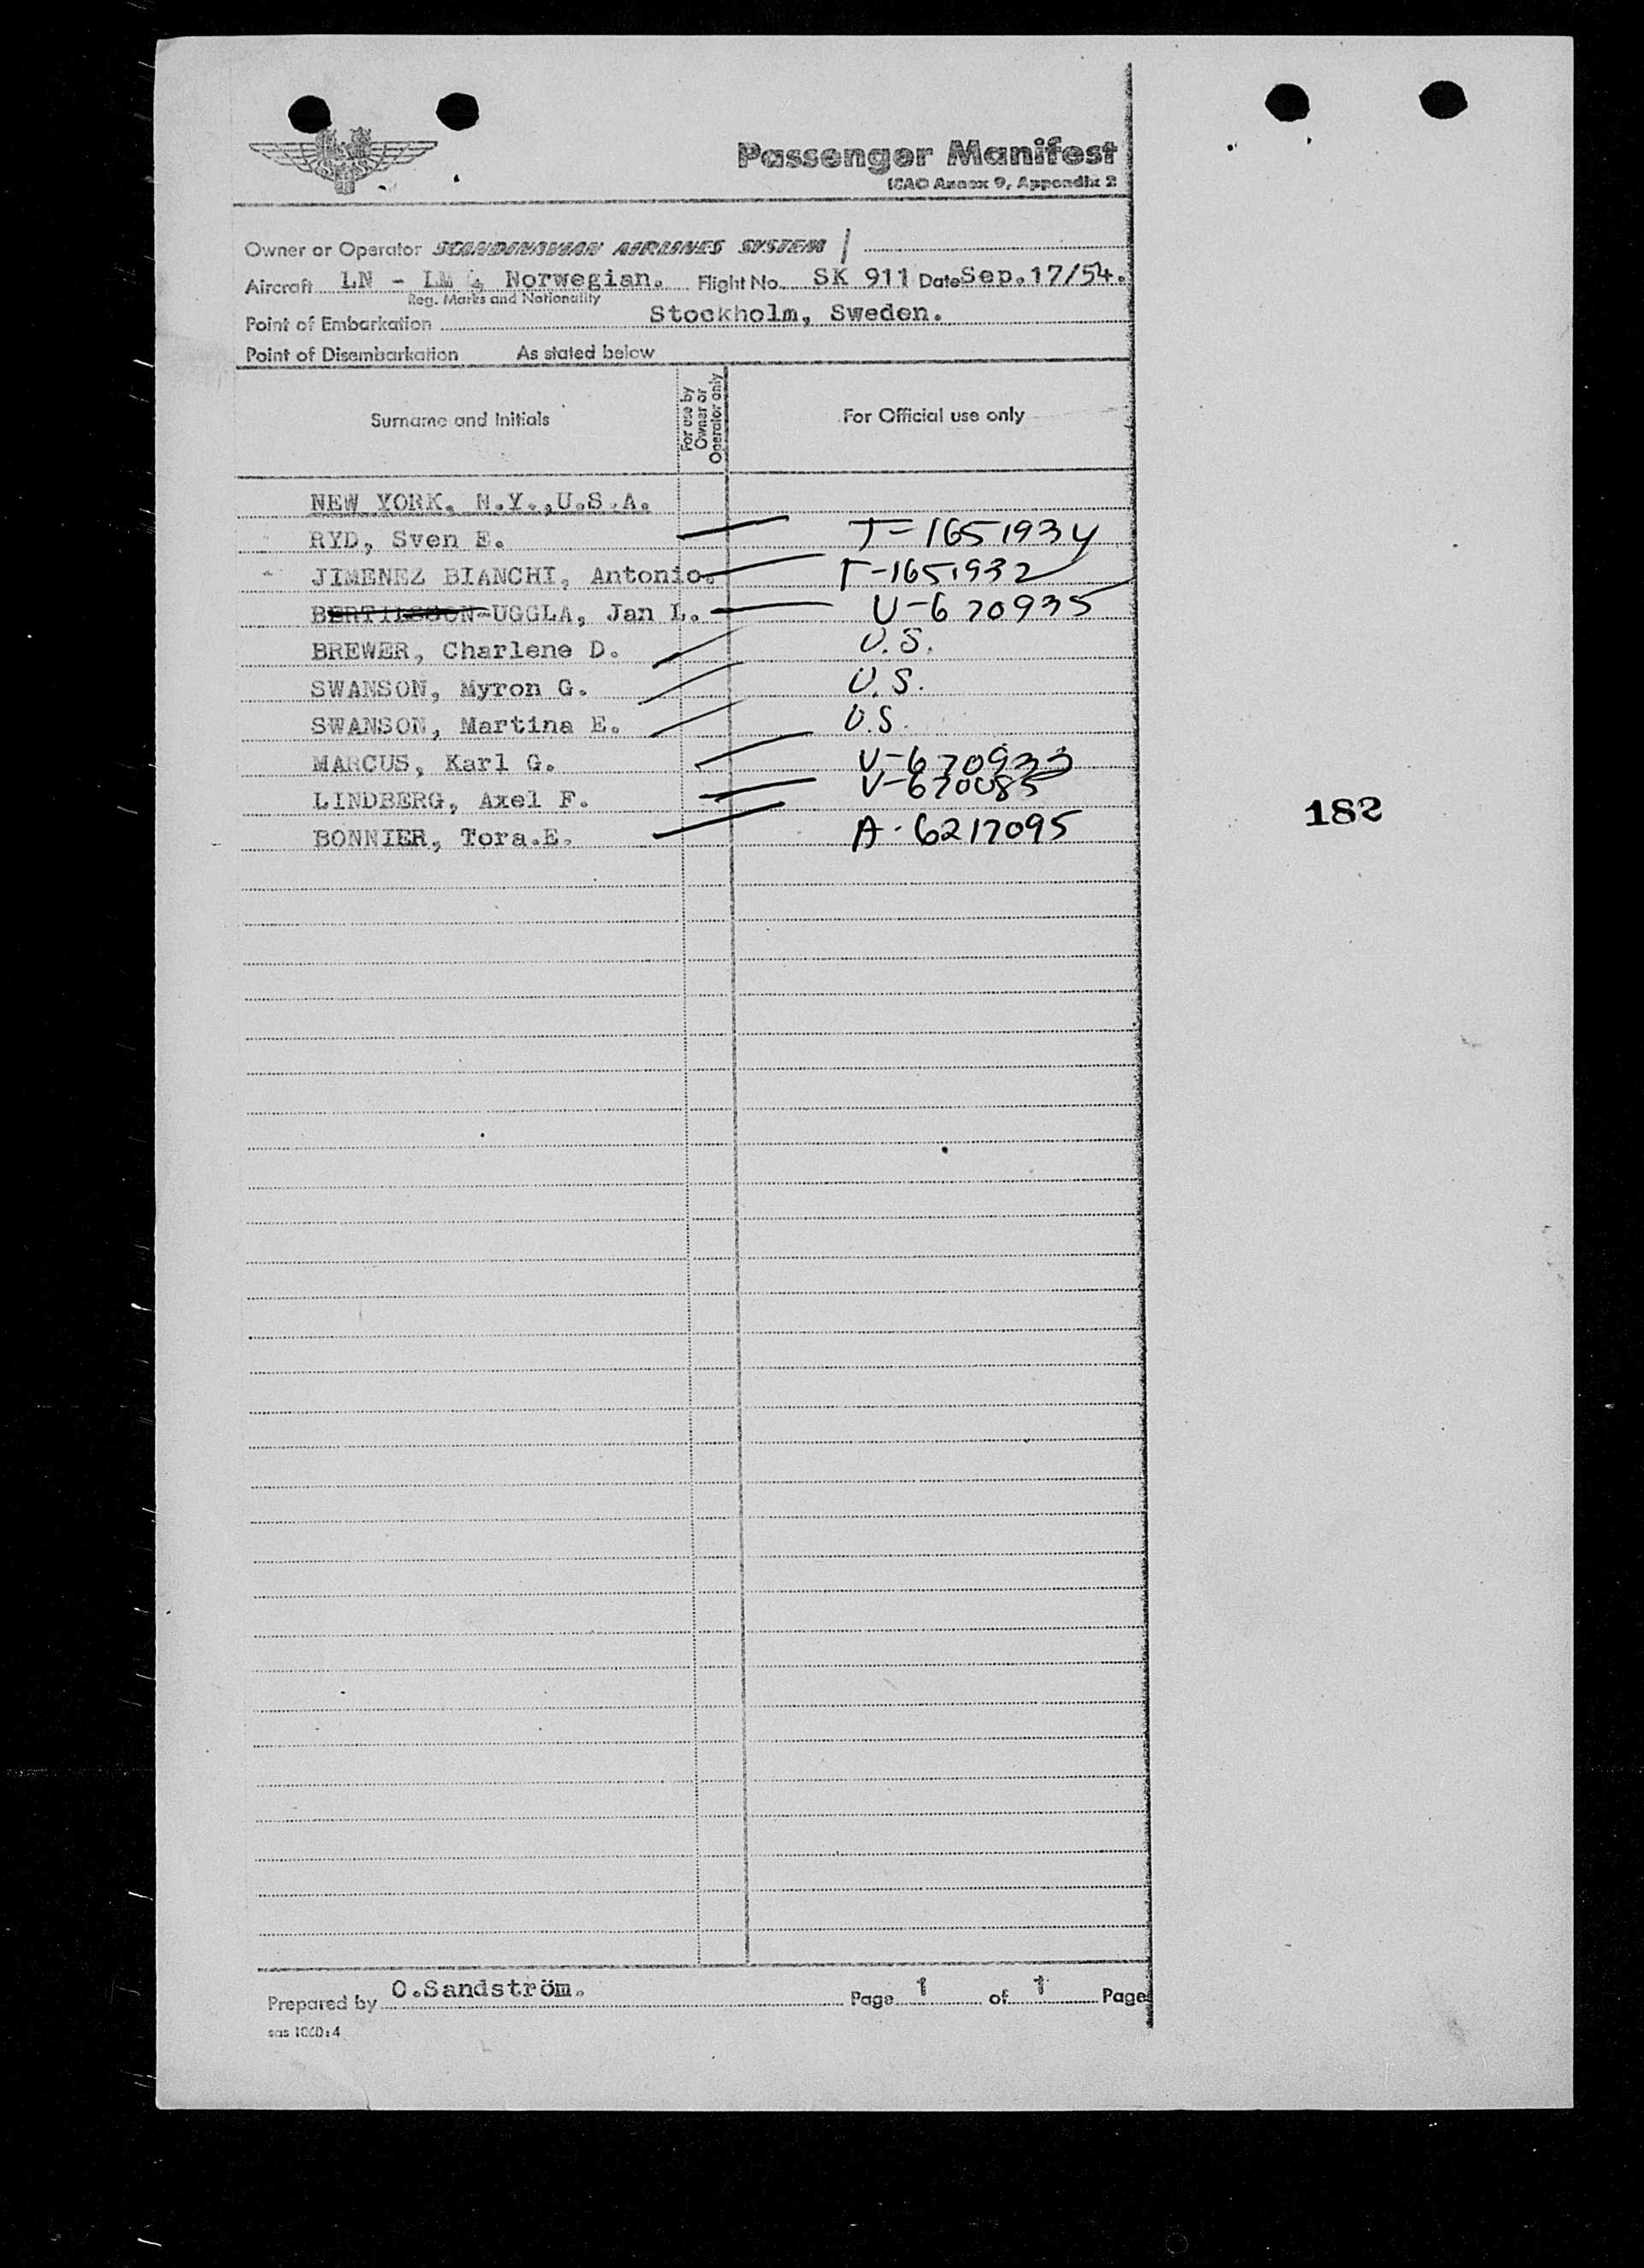 Passenger Manifest
ICAO Annex 9, Appendix 2
Owner or Operator SCANDINAVIAN AIRLINES SYSTEM
Aircraft LN - LM , Norwegian. Flight No. SK 911 Date Sep.17/54.
Reg. Marks and Nationality
Point of Embarkation Stockholm, Sweden.
Point of Disembarkation As stated below
Surname and Initials For use by Owner or Operator only For Official use only
NEW YORK, N.Y.,U.S.A.
RYD, Sven E. T-1651934
JIMENEZ BIANCHI, Antonio. T-1651932
BERTILSSON-UGGLA, Jan L. V-670935
BREWER, Charlene D. U.S.
SWANSON, Myron G. U.S.
SWANSON, Martina E. U.S.
MARCUS, Karl G. V-670933
LINDBERG, Axel F. V-670085
BONNIER, Tora.E. A-6217095
182
Prepared by O.Sandström. Page 1 of 1 Page
sas 1060:4